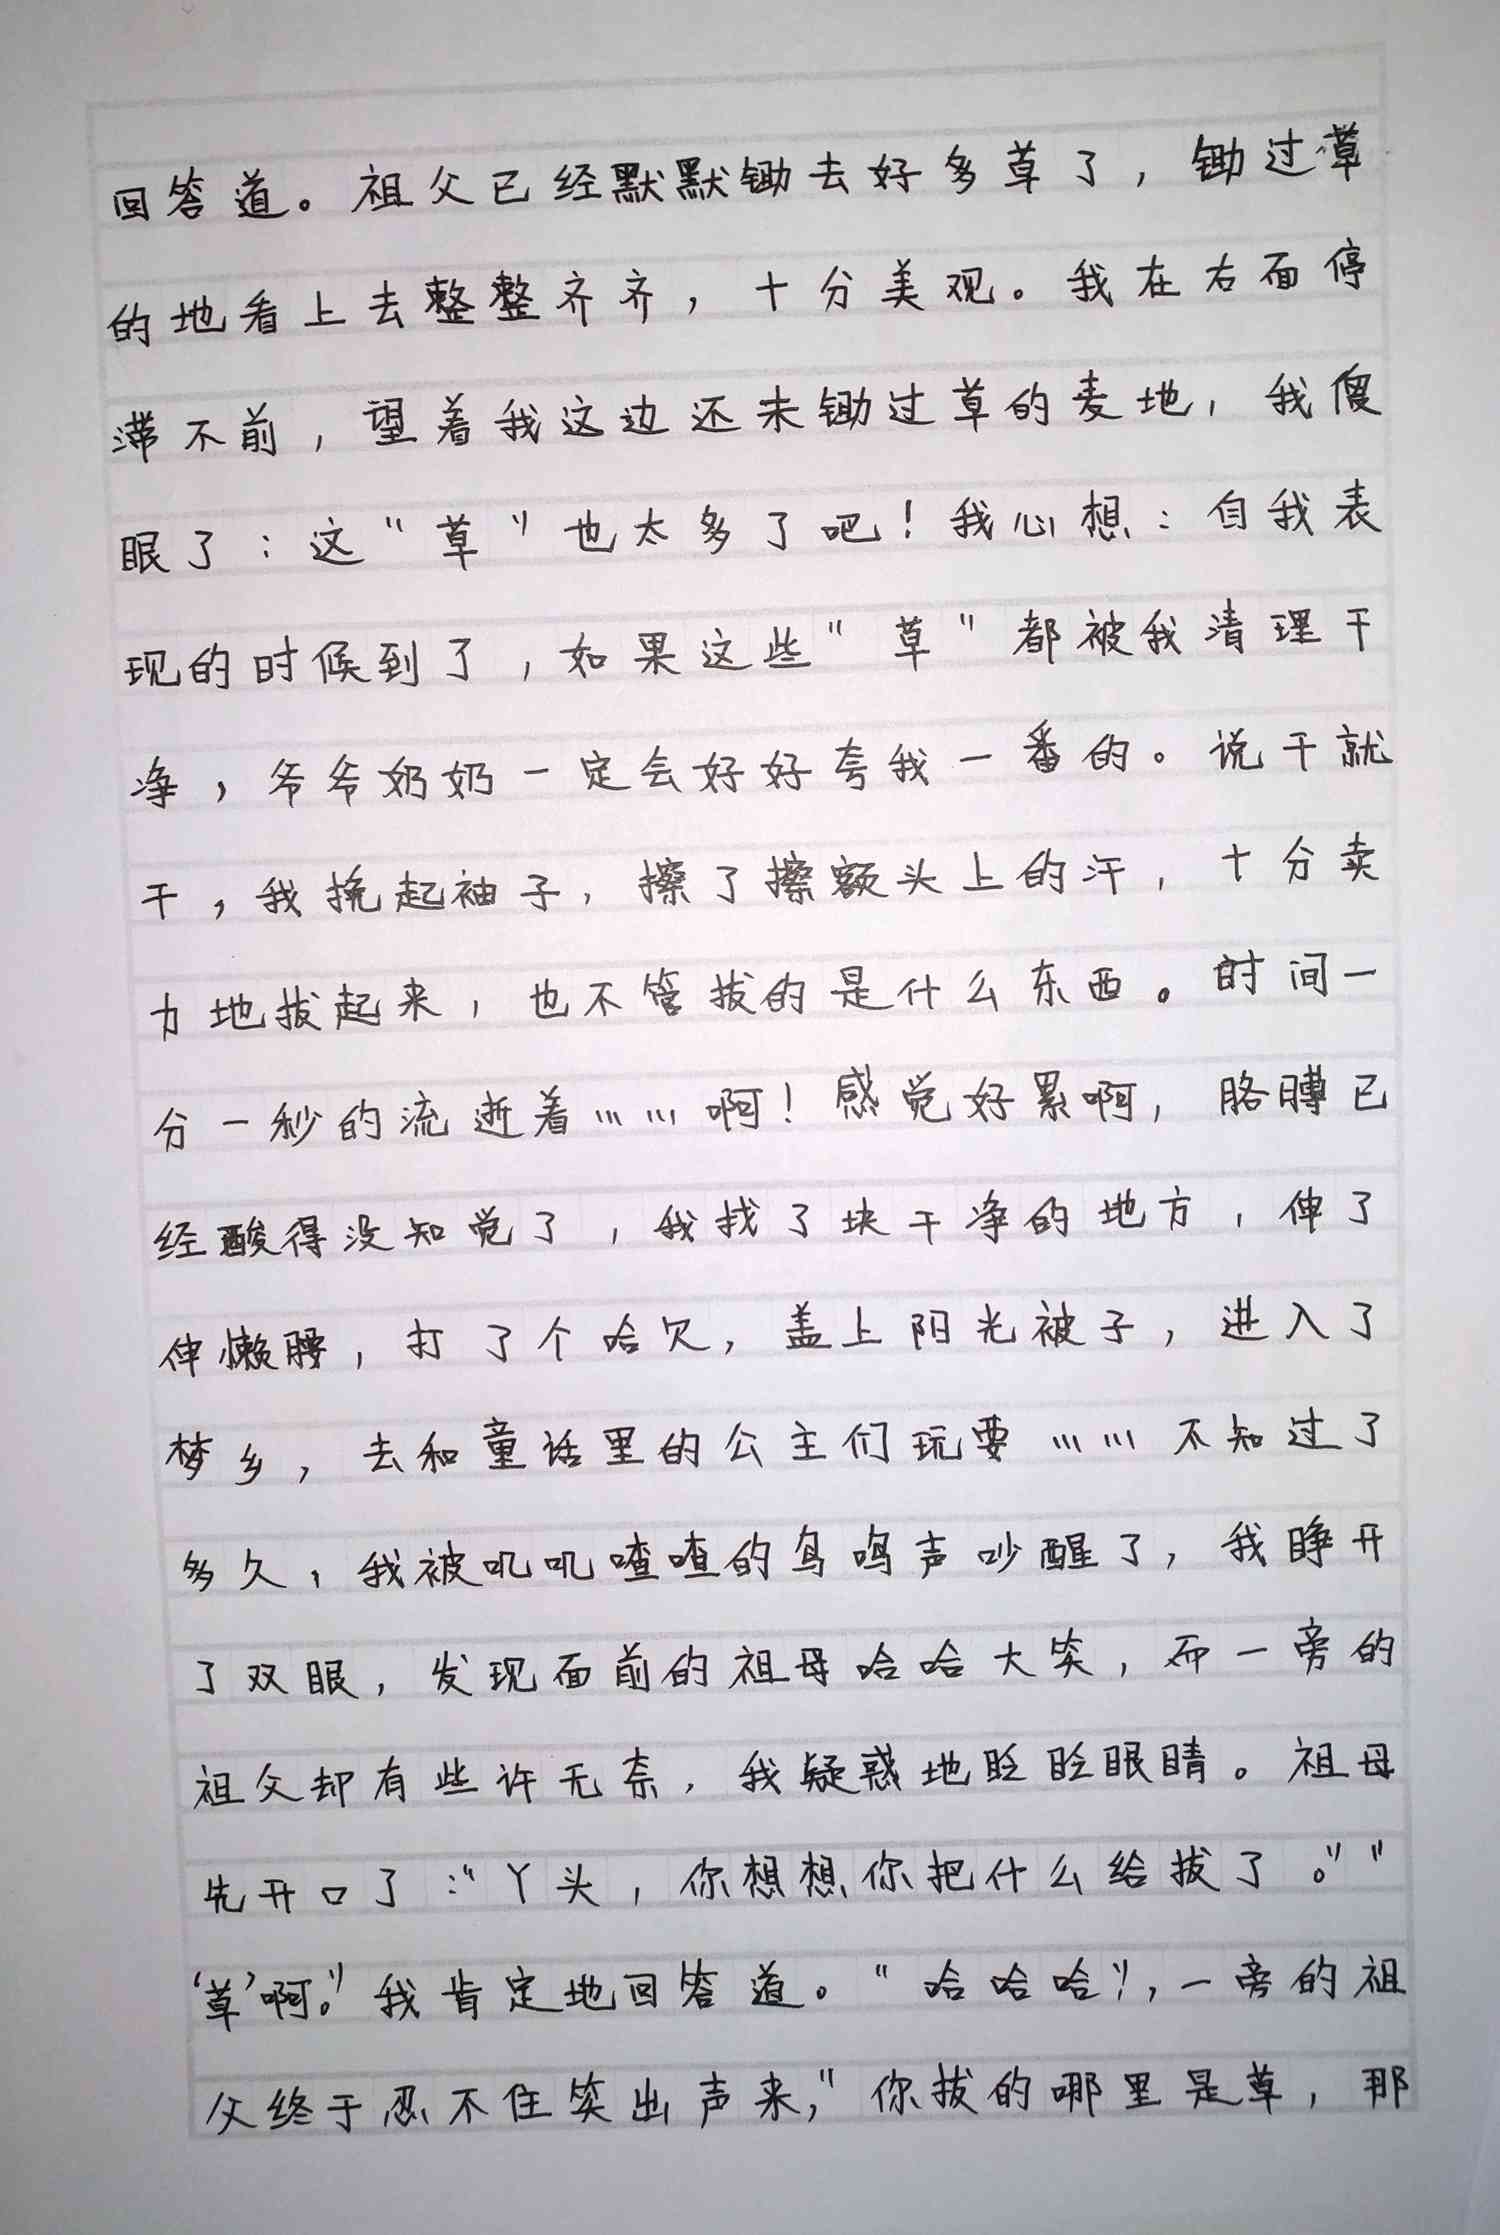 回答道。祖父已经默默锄去好多草了，锄过草
的地看上去整整齐齐，十分美观。我在右面停
滞不前，望着我这边还未锄过草的麦地，我傻
眼了：这“草”也太多了吧！我心想：自我表
现的时候到了，如果这些“草”都被我清理干
净，爷爷奶奶一定会好好夸我一番的。说干就
干，我挽起袖子，擦了擦额头上的汗，十分卖
力地拔起来，也不管拔的是什么东西。时间一
分一秒的流逝着……啊！感觉好累啊，胳膊已
经酸得没知觉了，我找了块干净的地方，伸了
伸懒腰，打了个哈欠，盖上阳光被子，进入了
梦乡，去和童话里的公主们玩耍……不知过了
多久，我被叽叽喳喳的鸟鸣声吵醒了，我睁开
了双眼，发现面前的祖母哈哈大笑，而一旁的
祖父却有些许无奈，我疑惑地眨眨眼睛。祖母
先开口了：“丫头，你想想你把什么给拔了。”“
‘草’啊。”我肯定地回答道。“哈哈哈”，一旁的祖
父终于忍不住笑出声来，“你拔的哪里是草，那